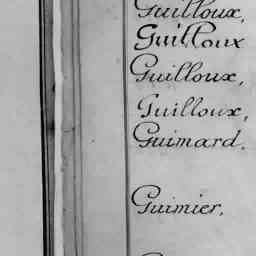 Guilloux,
Guilloux
Guilloux,
Guilloux,
Guimard.
Guimier.